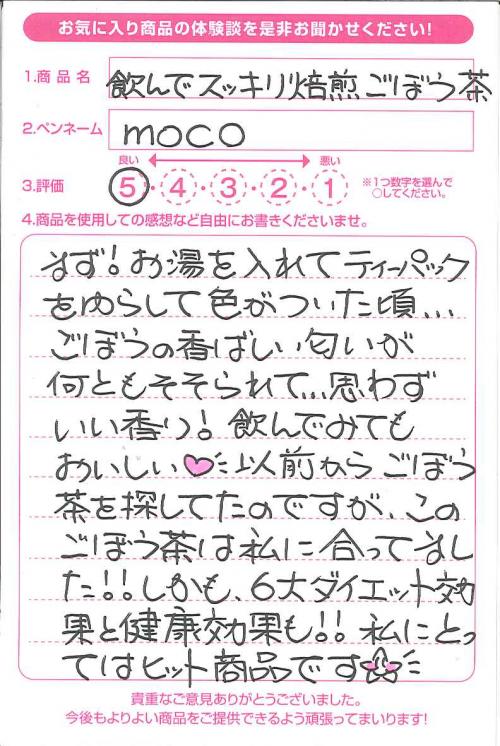 お気に入り商品の体験談を是非お聞かせください!
1.商品名 飲んでスッキリ焙煎ごぼう茶
2.ペンネーム moco
良い 悪い
3.評価 5・4・3・2・1 ※1つ数字を選んで
○してください。
4.商品を使用しての感想など自由にお書きくださいませ。
まず!お湯を入れてティーパック
をゆらして色がついた頃...
ごぼうの香ばしい匂いが
何ともそそられて...思わず
いい香り!飲んでみても
おいしい♡以前からごぼう
茶を探してたのですが、この
ごぼう茶は私に合ってまし
た!!しかも、6大ダイエット効
果と健康効果も!!私にとっ
てはヒット商品です☆
貴重なご意見ありがとうございました。
今後もよりよい商品をご提供できるよう頑張ってまいります!